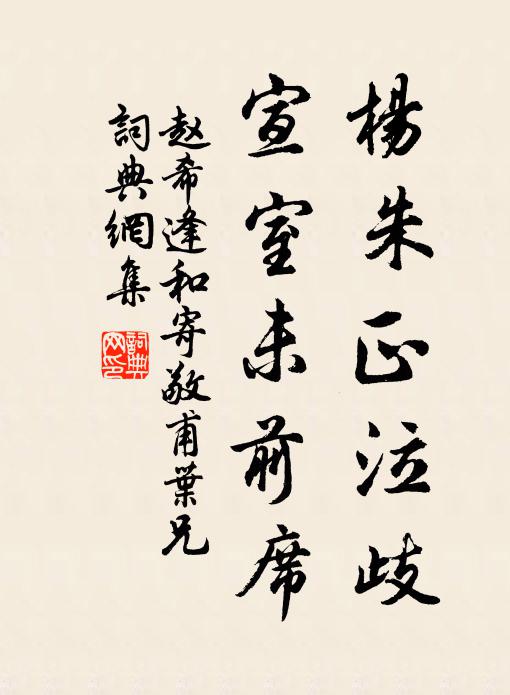 楊朱正泣歧
宣室未前席
赵希逢和寄敬甫葉兄
詞典網集
詞典网印